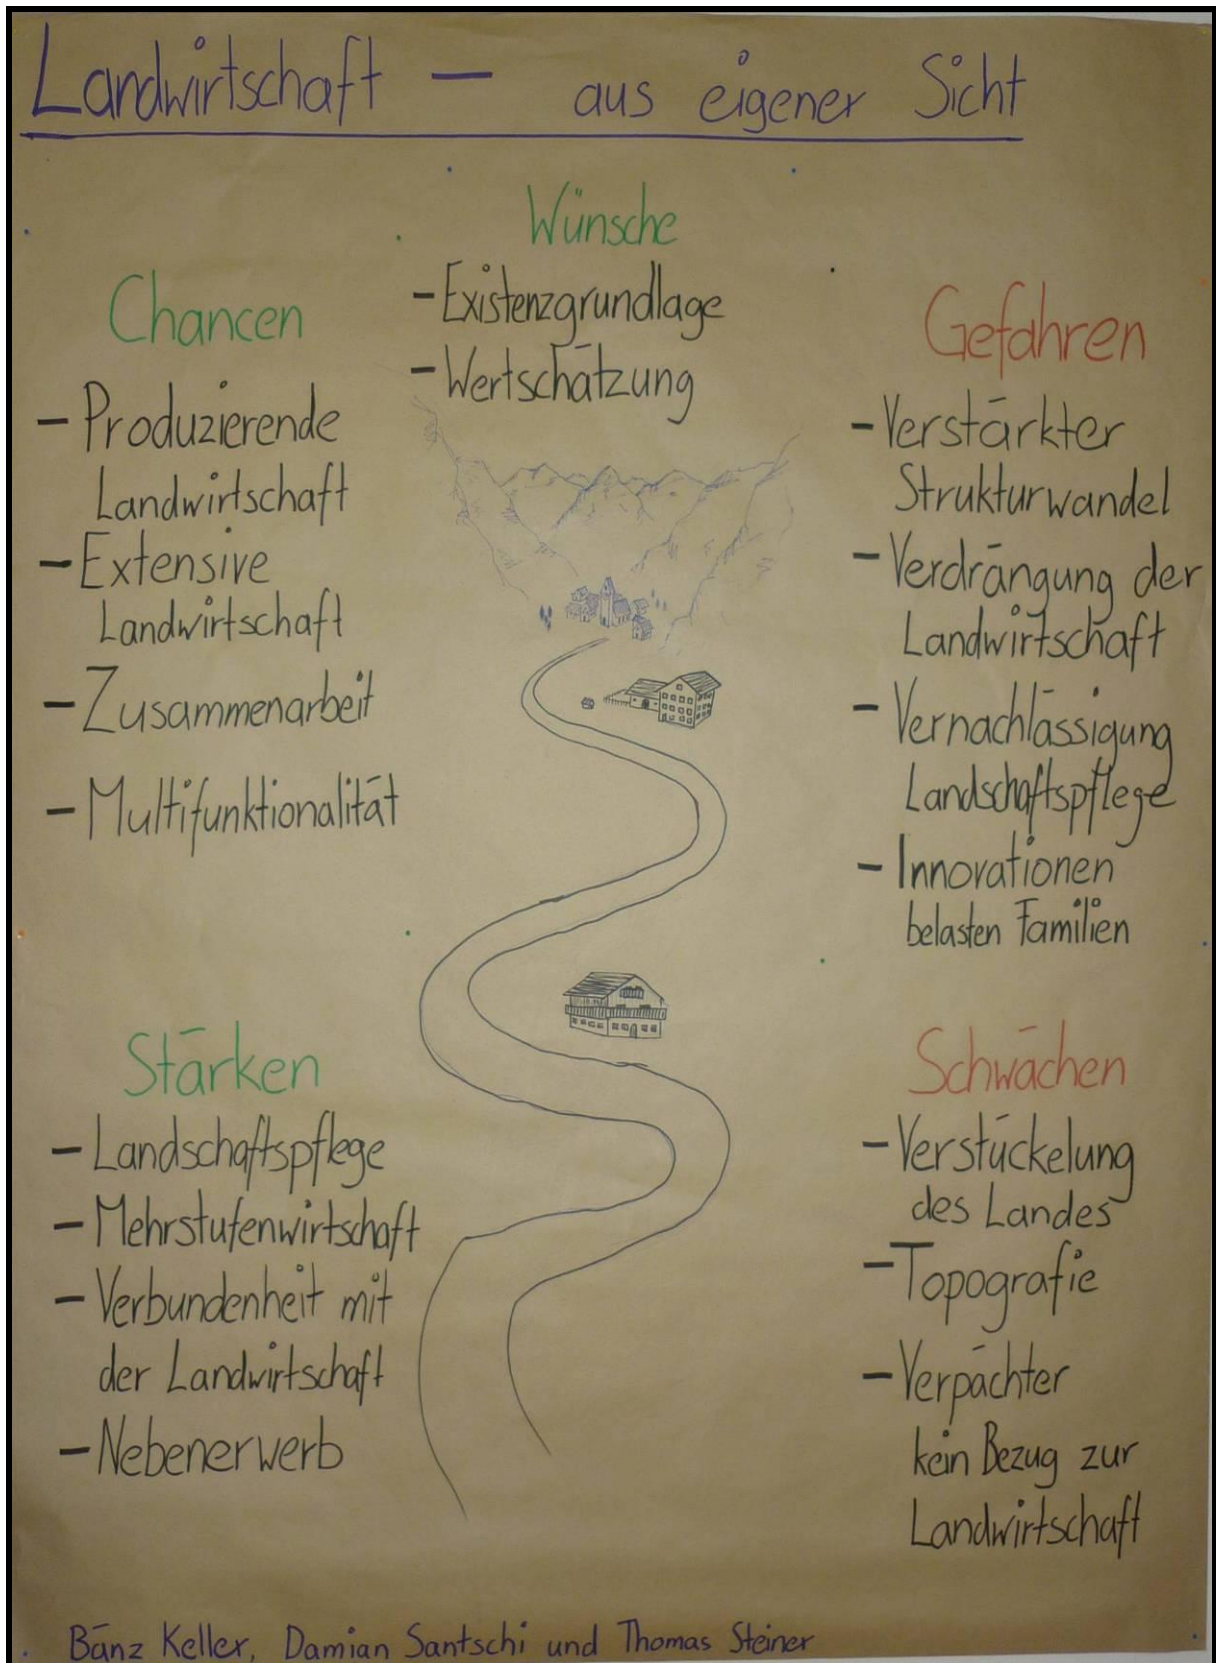 Landwirtschaft — aus eigener Sicht
Wünsche
- Existenzgrundlage
- Wertschätzung
Chancen
- Produzierende
Landwirtschaft
- Extensive
Landwirtschaft
- Zusammenarbeit
- Multifunktionalität
Gefahren
- Verstärkter
Strukturwandel
- Verdrängung der
Landwirtschaft
- Vernachlässigung
Landschaftspflege
- Innovationen
belasten Familien
Stärken
- Landschaftspflege
- Mehrstufenwirtschaft
- Verbundenheit mit
der Landwirtschaft
- Nebenerwerb
Schwächen
- Verstückelung
des Landes
- Topografie
- Verpächter
kein Bezug zur
Landwirtschaft
Bänz Keller, Damian Santschi und Thomas Steiner